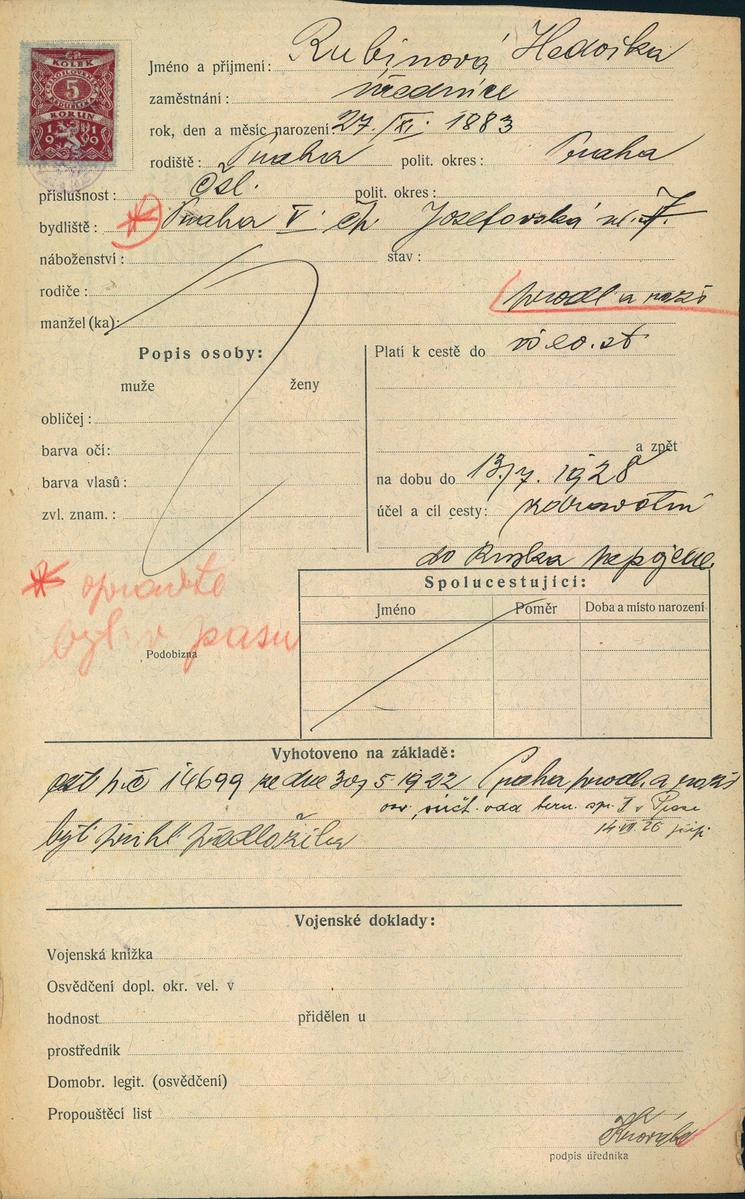 KOLEK
5
KORUN
1919
Jméno a příjmení: Rubínová Hedvika
zaměstnání: úřednice
rok, den a měsíc narození 27./XI. 1883
rodiště: Praha polit. okres: Praha
příslušnost: čsl. polit. okres:
bydliště: * Praha V. čp. Josefovská ul. 7.
náboženství: stav:
rodiče: prodl. a rozš
manžel (ka):
Popis osoby: Platí k cestě do
muže ženy
obličej:
a zpět
barva očí:
na dobu do 13/7. 1928
barva vlasů:
účel a cíl cesty: zdravotní
zvl. znam.:
do
Spolucestující:
Jméno Poměr Doba a místo narození
* opravte
byt. v pasu
Podobizna
Vyhotoveno na základě:
čp 14699 ze dne 30/5 1922 Praha prodl. a rozš
odd. bern. spr. v Praze
14.VII 26
byt. přihl. předložila
Vojenské doklady:
Vojenská knížka
Osvědčení dopl. okr. vel. v
hodnost přidělen u
prostředník
Domobr. legit. (osvědčení)
Propouštěcí list
podpis úředníka